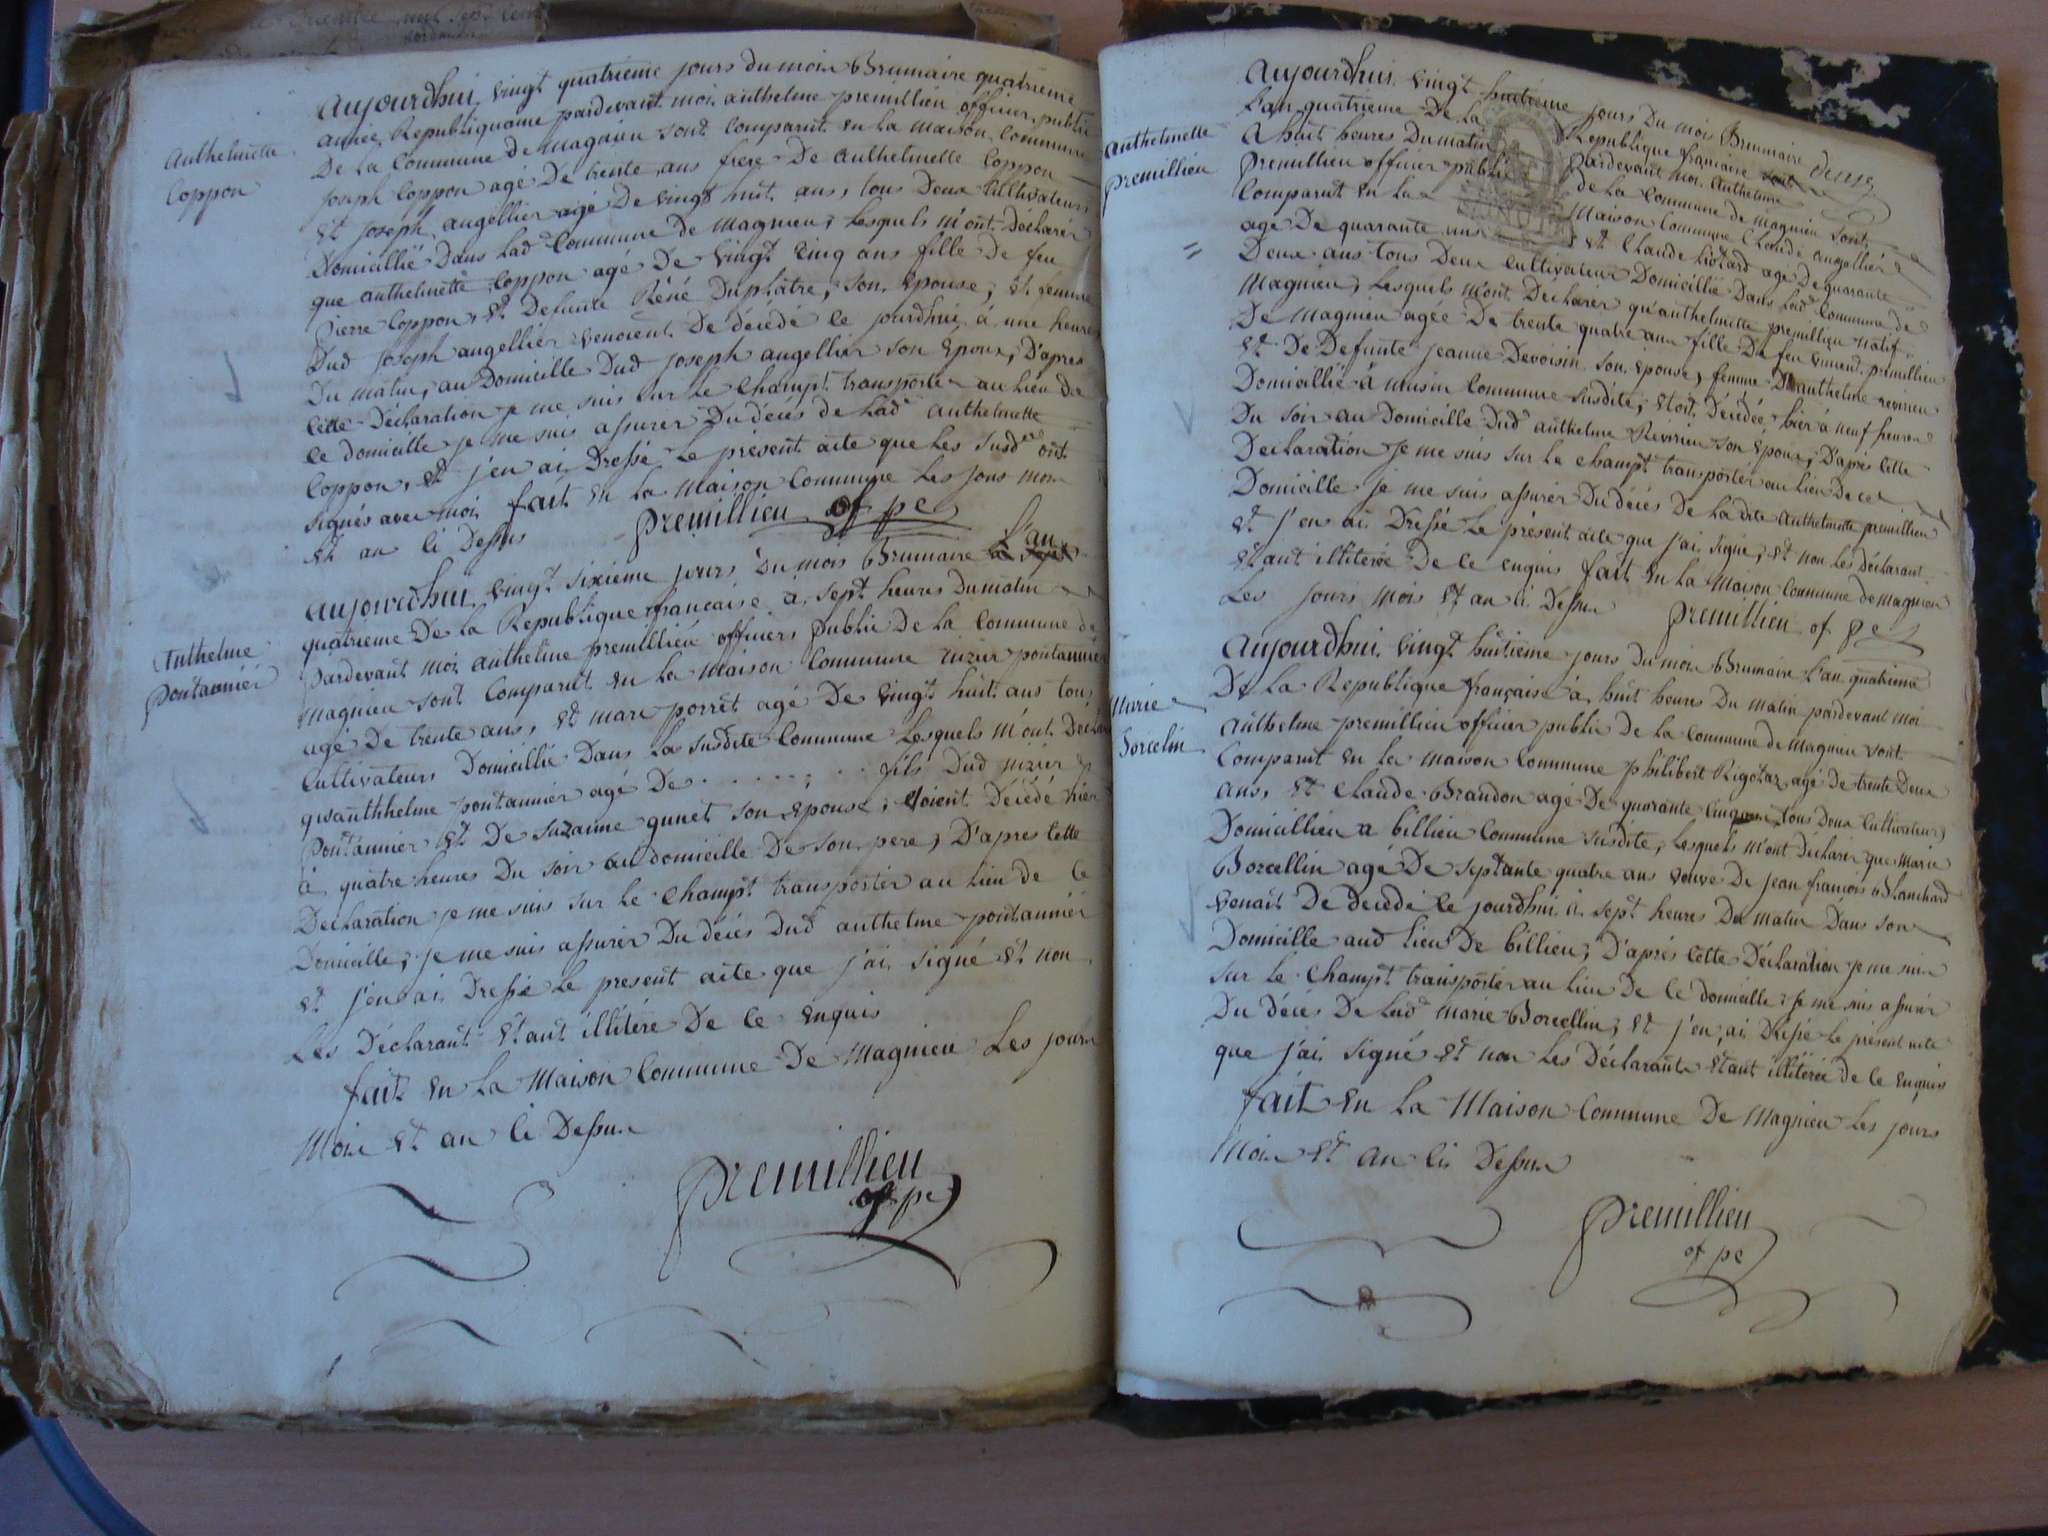 Anthelmette
Coppon
aujourdhui vingt quatrieme jours du mois Brumaire quatrieme
année Republiquaine pardevant moi anthelme premillieu officier public
De la Commune de magnieu sont Comparut en la maison Commune
joseph Coppon agé De trente ans frere De anthelmette Coppon
et joseph angellier agé De vingt huit ans, tous Deux Cultivateurs
Domicillié Dans Lad Commune de magnieu, Lesquels m'ont Déclarér
que anthelmette Coppon agé De vingt Cinq ans fille De feu
pierre Coppon, et Defunte Réné Duplatre, son Epouse, et femme
Dud joseph angellier venoient De décédé ce jourdhui à une heure
Du matin, au Domicille Dud joseph angellier son Epoux, D'apres
Cette Déclaration je me suis sur le Champt transporter au lieu De
ce domicille je me suis assurer Du décés de Lad anthelmette
Coppon, et j'en ai Dressé Le present acte que Les susd ont
signés avec moi fait en la maison Commune Les jours mois
et an Ci Dessus premillieu of pe
Anthelme
pontannier
aujourdhui vingt sixieme jours Du mois Brumaire L'an
quatrieme De La Republique française à sept heures Du matin
pardevant moi anthelme premillieu officiers public De la Commune de
magnieu sont Comparut en La maison Commune nizier pontannier
agé De trente ans, et marc porret agé De vingt huit ans tous
Cultivateurs Domicillié Dans La susdite Commune Lesquels m'ont Déclarer
qu'anthhelme pontannier agé De . . . . . . . fils Dud nizier
pontannier et De suzanne gunet son Epouse, etoient Décédé hier
à quatre heures Du soir au domicille De son pere, D'apres Cette
Declaration je me suis sur Le Champt transporter au Lieu de Ce
Domicille, je me suis assurer Du décés Dud anthelme pontannier
et j'en ai Dressé Le present acte que j'ai signé et non
Les Déclarant etant illitéré De Ce enquis
fait en La Maison Commune De Magnieu Les jours
Mois et an Ci Dessus
premillieu
of pe
Anthelmette
premillieu
aujourdhui vingt huitieme jours Du mois Brumaire
L'an quatrieme De La Republique francaise
A huit heures Du matin pardevant moi anthelme
premillieu officier public de La Commune de Magnieu sont
Comparut en La Maison Commune Claude angellier
agé De quarante ans et Claude hotard agé De quarante
Deux ans tous Deux Cultivateur Domicillié Dans Lad Commune de
Magnieu, Lesquels m'ont Déclarer qu'anthelmette premillieu natif
De Magnieu agée De trente quatre ans fille De feu vincend premillieu
et De Defunte jeanne Devoisin son epouse, femme D'anthelme revirieu
Domicillié à musin Commune susdite, etoit Décédée hier à neuf heures
Du soir au Domicille Dud anthelme Revirieu son Epoux, D'apres Cette
Déclaration je me suis sur Le Champt transporter au Lieu De ce
Domicille je me suis assurer Du décés De Ladite anthelmette premillieu
et j'en ai Dressé Le présent acte que j'ai signé, et non Les déclarant
etant illitéré De Ce enquis fait en La Maison Commune de magnieu
Les jours Mois et an ci Dessus premillieu of pe
Marie
Borcelin
Aujourdhui vingt huitieme jours Du mois Brumaire L'an quatrieme
De La Republique française à huit heures Du matin pardevant moi
anthelme premillieu officier public de La Commune de magnieu sont
Comparut en La maison Commune philibert Rigotaz agé De trente Deux
ans, et Claude Brandon agé De quarante Cinq tous Deux Cultivateurs
Domicillien a billieu Commune susdite, Lesquels m'ont Déclarer que Marie
Borcellin agé De septante quatre ans veuve De jean francois Blanchard
venait De Décédé Ce jourdhui à sept heures Du matin Dans son
Domicille aud Lieu De billieu, D'aprés Cette Déclaration je me suis
sur Le Champt transporter au Lieu De Ce domicille je me suis assurer
Du décés De Lad marie Borcellin, et j'en ai Dressé Le présent acte
que j'ai signé et non Les Déclarants etant illitéréé de Ce enquis
fait en La Maison Commune De Magnieu Les jours
Mois et an Ci Dessus
premillieu
of pe